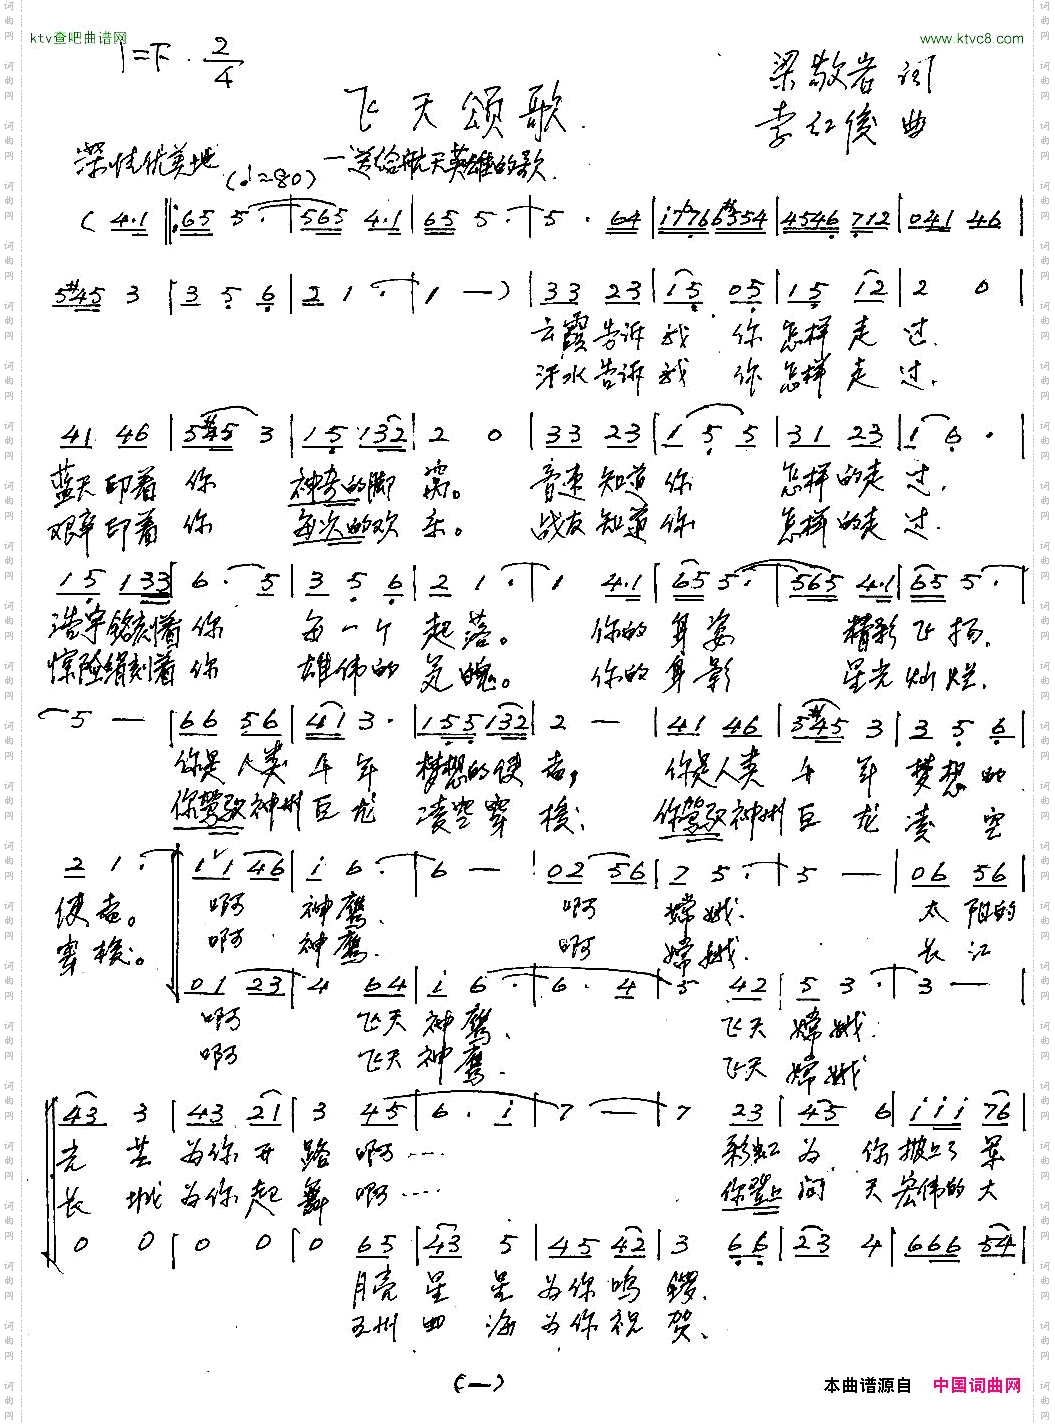 ktv查吧曲谱网
www.ktvc8.com
1=F 2/4
飞天颂歌
梁敬岩 词
李红俊 曲
深情优美地 (♩=80) —送给航天英雄的歌
( 4·1 ‖: 65 5· | 565 4·1 | 65 5· | 5 · 64 | i#7766#5554 | 4546 712 | 041 46 |
5#45 3 | 3 5 6 | 2 1 · | 1 — ) | 33 23 | 15 05 | 15 12 | 2 0 |
云霞告诉我 你怎样走过.
汗水告诉我 你怎样走过.
41 46 | 5#45 3 | 15 132 | 2 0 | 33 23 | 1 5 5 | 31 23 | 1 6 ·
蓝天印着你 神奇的脚窝。 音速知道你 怎样的走过.
艰辛印着你 每次的欢乐。 战友知道你 怎样的走过.
15 133 | 6 · 5 | 3 5 6 | 2 1 · | 1 4·1 | 655 5· | 565 4·1 | 65 5 · |
浩宇铭刻着你 每一个起落。 你的身姿 精彩飞扬.
惊险绢刻着你 雄伟的气魄。 你的身影 星光灿烂.
5 — | 66 56 | 41 3 · | 155 132 | 2 — | 41 46 | 5#45 3 | 3 5 6 |
你是人类千年 梦想的使者, 你是人类千年梦想的
你驾驭神州巨龙 凌空穿梭; 你驾驭神州巨龙凌空
2 1 · | 1 1 46 | i 6 · | 6 — | 02 56 | 2 5 · | 5 — | 06 56 |
使者。 啊 神鹰. 啊 嫦娥. 太阳的
穿梭。 啊 神鹰. 啊 嫦娥. 长江
01 23 | 4 64 | i 6 · | 6 · 4 | 5 42 | 5 3 · | 3 — |
啊 飞天神鹰. 飞天嫦娥.
啊 飞天神鹰. 飞天嫦娥
43 3 | 43 21 | 3 45 | 6 · i | 7 — | 7 23 | 45 6 | iii 76
光芒为你开路 啊…… 彩虹为你披上了军
长城为你起舞 啊…… 你登上问天宏伟的大
0 0 | 0 0 | 0 65 | 43 5 | 45 42 | 3 66 | 23 4 | 666 54 |
月亮星星为你鸣锣.
五州四海为你祝贺.
(一)
本曲谱源自 中国词曲网